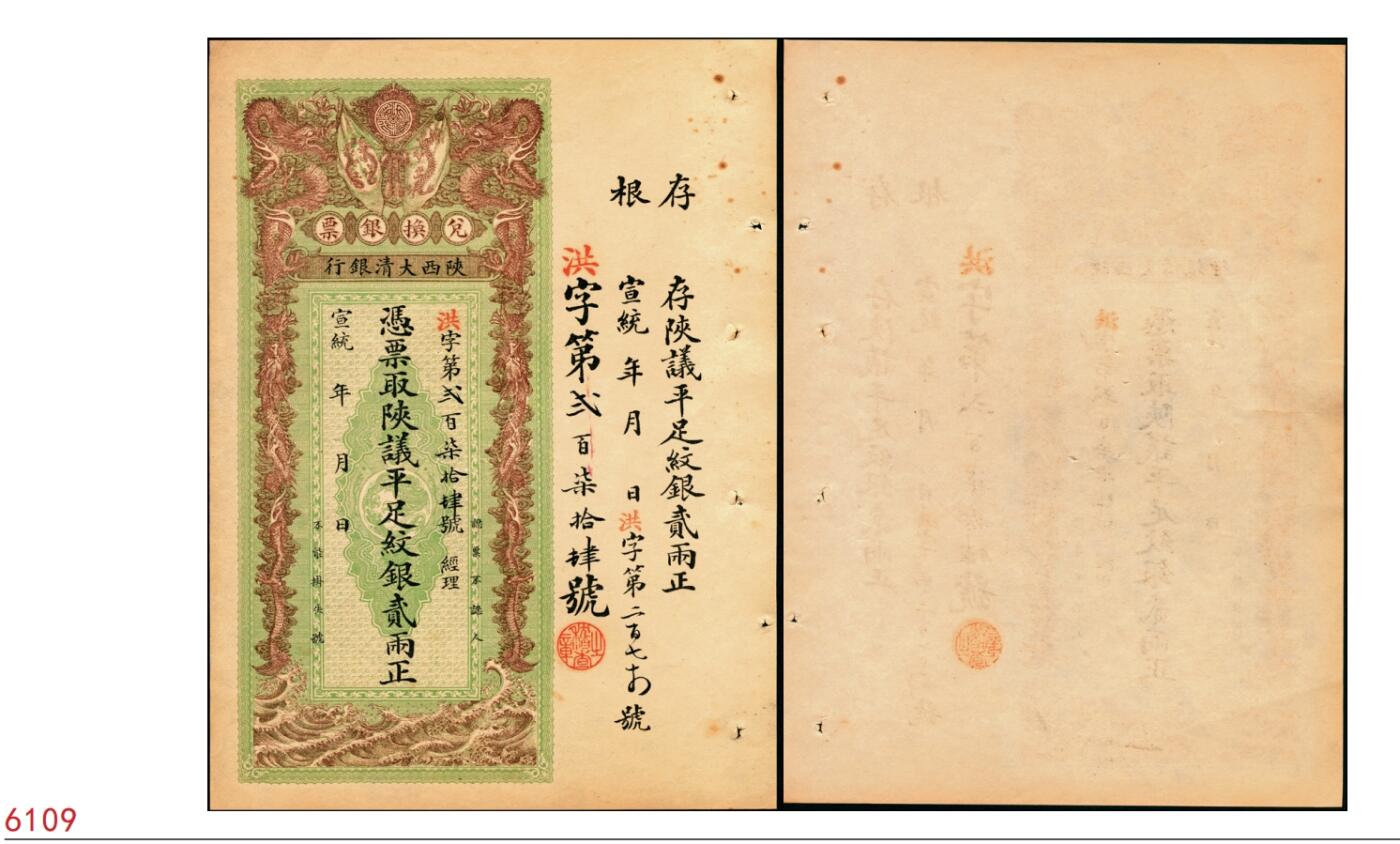 存根
存陝議平足紋銀貳兩正
宣統 年 月 日 洪字第二百七十四號
洪字第弍百柒拾肆號
兌換銀票
陝西大清銀行
認票不認人
洪字第弍百柒拾肆號 經理
憑票取陝議平足紋銀貳兩正
宣統 年 月 日
不能掛失號
6109